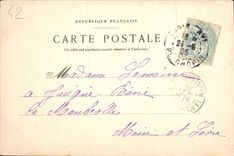 52
RÉPUBLIQUE FRANÇAISE
CARTE POSTALE
Ce côté est exclusivement réservé à l'adresse.
Madame Lemoine
a Juigné Béné
La Membrolle
Maine et Loire
PL. CHOPIN
24 -6
05